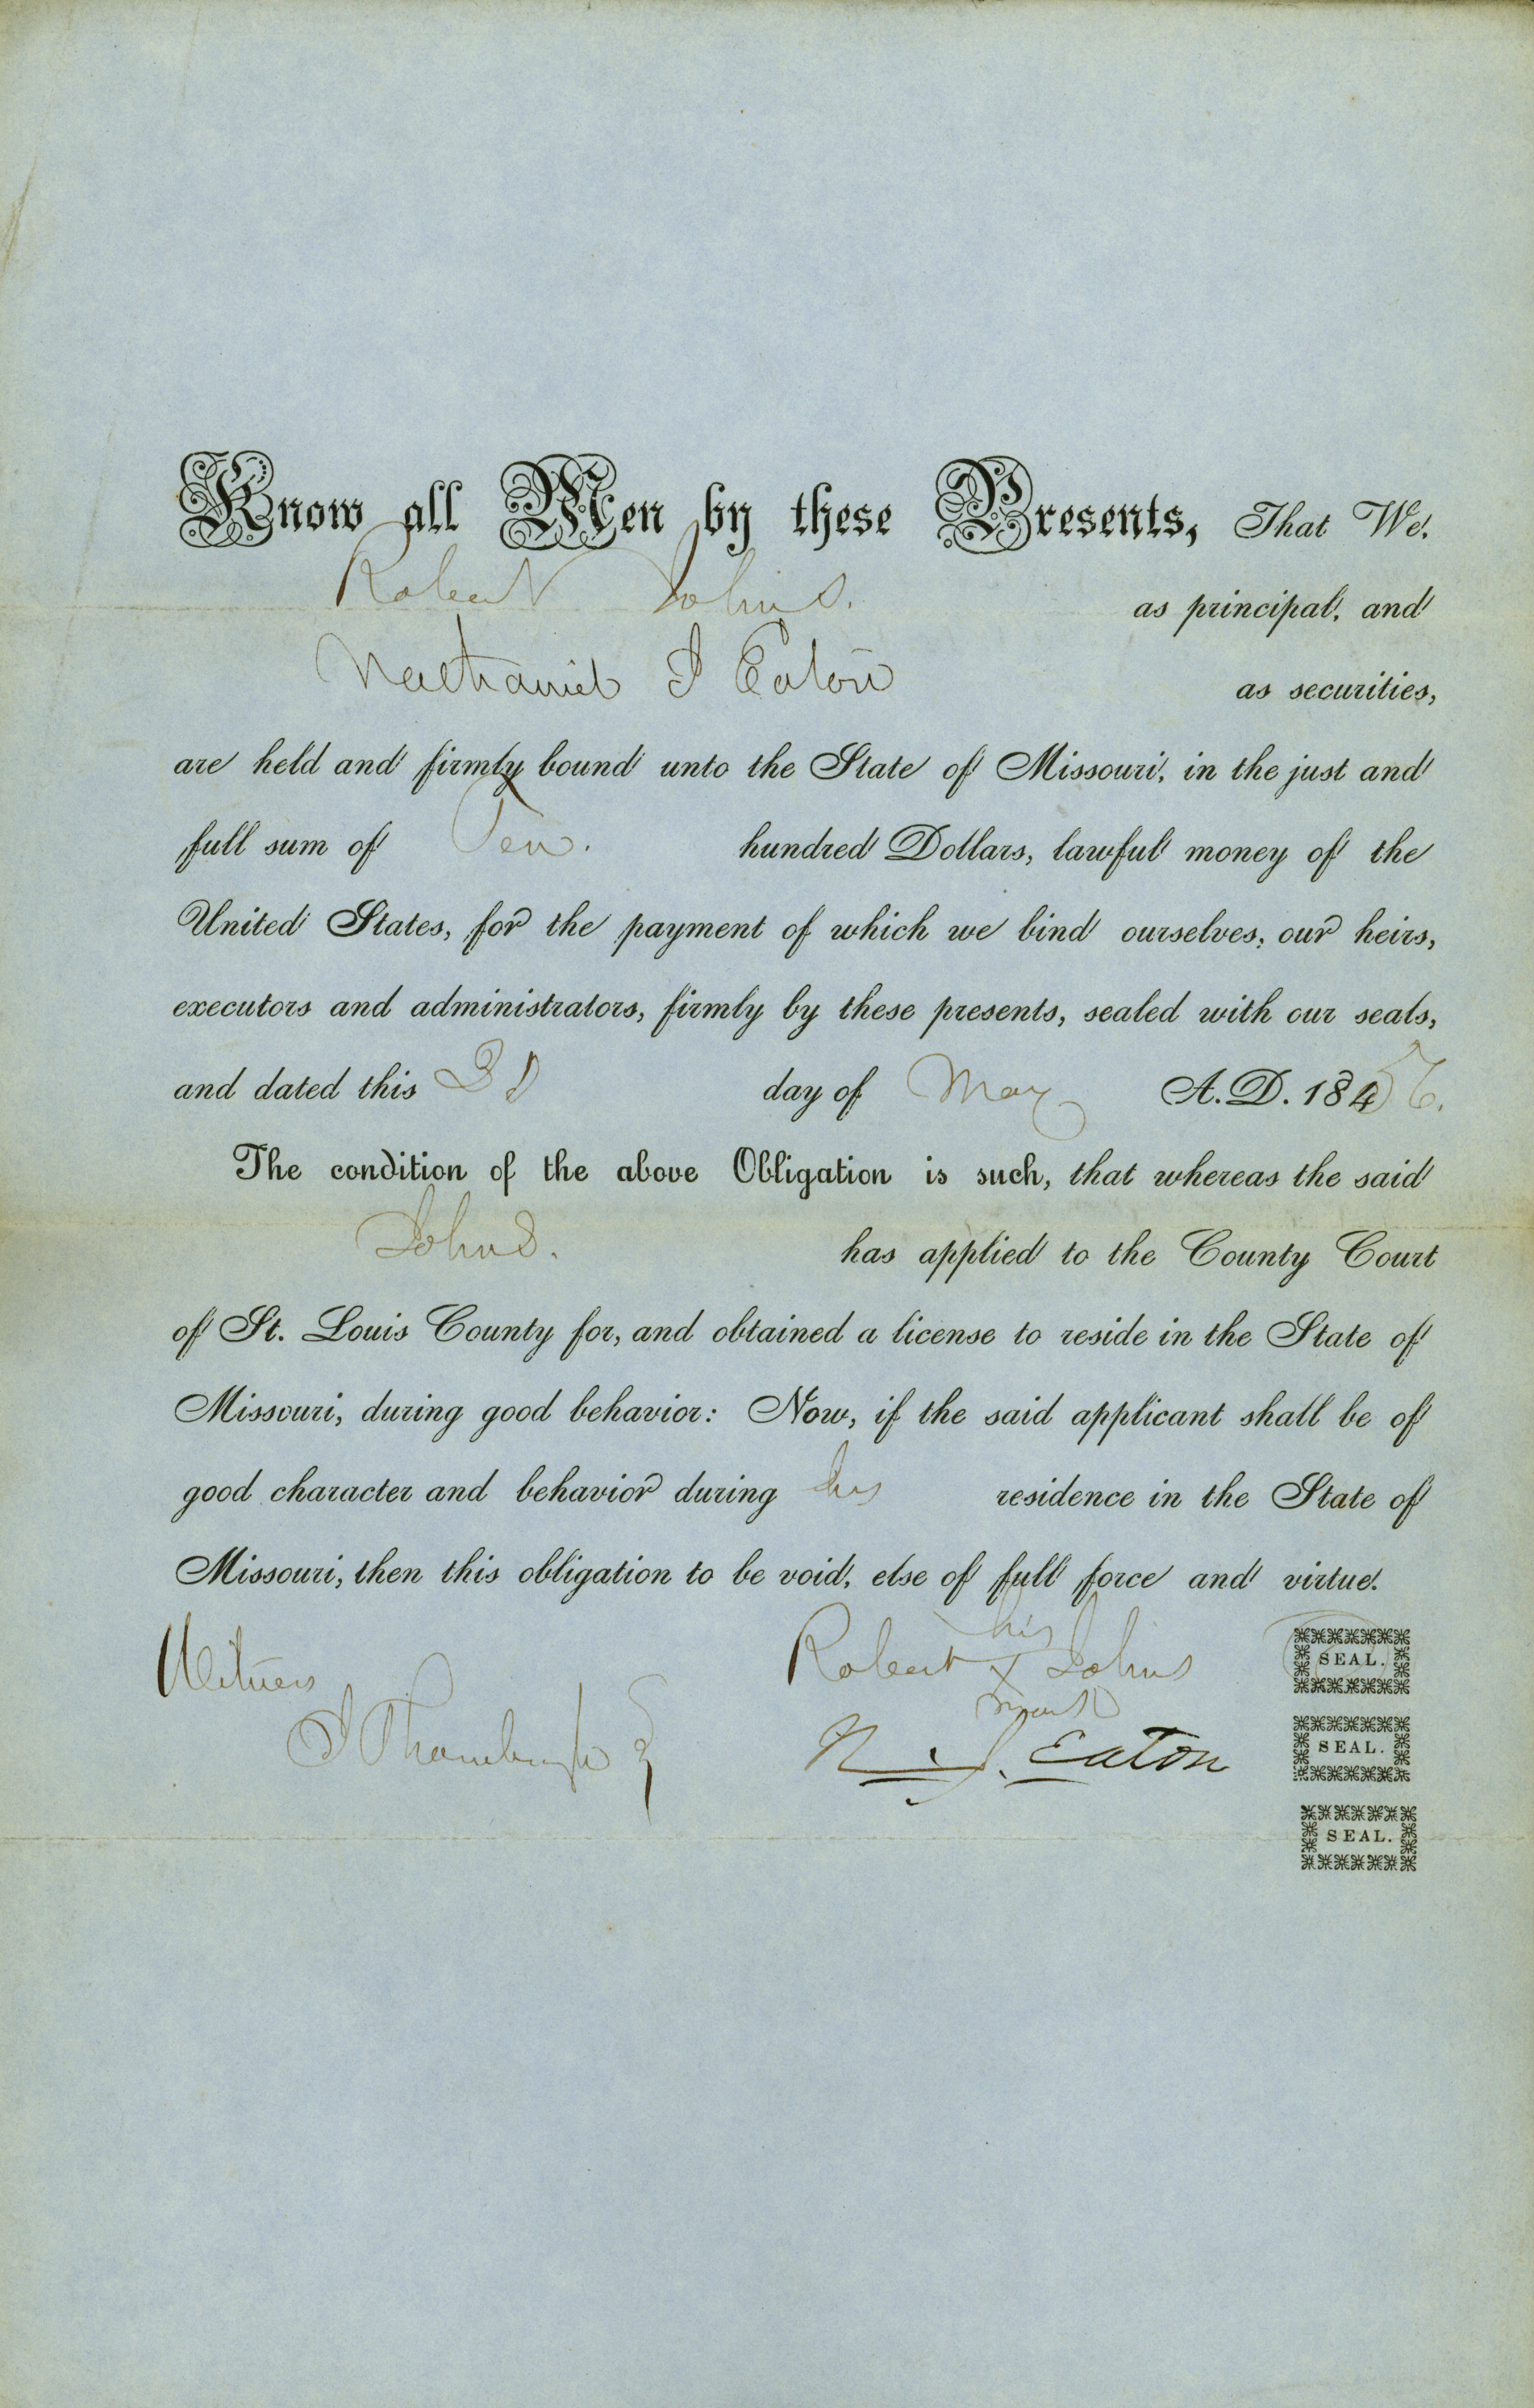 Know all Men by these Presents, That We,
Robert Johns. as principal, and
Nathaniel J Eaton as securities,
are held and firmly bound unto the State of Missouri, in the just and
full sum of Ten. hundred Dollars, lawful money of the
United States, for the payment of which we bind ourselves, our heirs,
executors and administrators, firmly by these presents, sealed with our seals,
and dated this 3d day of May A. D. 1856.
The condition of the above Obligation is such, that whereas the said
Johns. has applied to the County Court
of St. Louis County for, and obtained a license to reside in the State of
Missouri, during good behavior: Now, if the said applicant shall be of
good character and behavior during his residence in the State of
Missouri, then this obligation to be void, else of full force and virtue.
his
Witness Robert X Johns SEAL.
mark
N. J. Eaton SEAL.
SEAL.